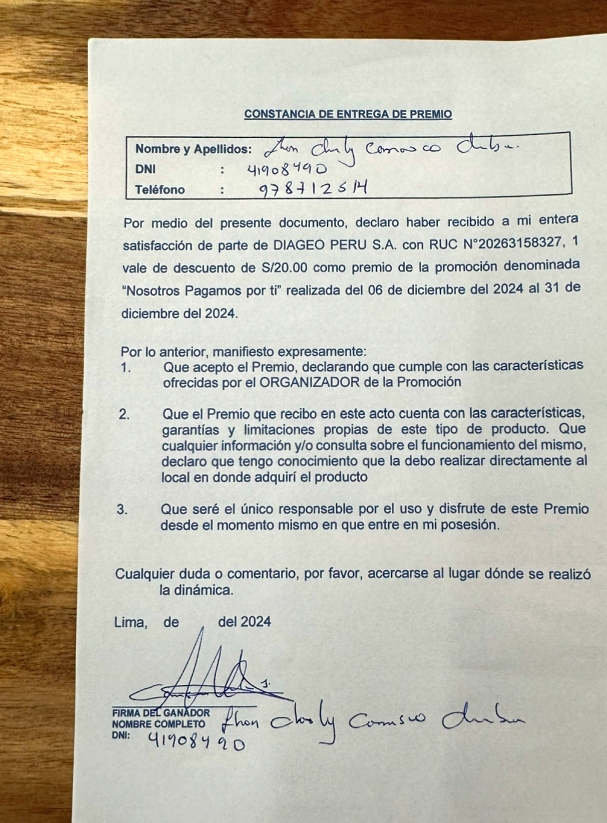 CONSTANCIA DE ENTREGA DE PREMIO
Nombre y Apellidos: Jhon
DNI : 41908490
Teléfono : 978712514
Por medio del presente documento, declaro haber recibido a mi entera
satisfacción de parte de DIAGEO PERU S.A. con RUC N°20263158327, 1
vale de descuento de S/20.00 como premio de la promoción denominada
“Nosotros Pagamos por ti” realizada del 06 de diciembre del 2024 al 31 de
diciembre del 2024.
Por lo anterior, manifiesto expresamente:
1. Que acepto el Premio, declarando que cumple con las características
ofrecidas por el ORGANIZADOR de la Promoción
2. Que el Premio que recibo en este acto cuenta con las características,
garantías y limitaciones propias de este tipo de producto. Que
cualquier información y/o consulta sobre el funcionamiento del mismo,
declaro que tengo conocimiento que la debo realizar directamente al
local en donde adquirí el producto
3. Que seré el único responsable por el uso y disfrute de este Premio
desde el momento mismo en que entre en mi posesión.
Cualquier duda o comentario, por favor, acercarse al lugar dónde se realizó
la dinámica.
Lima, de del 2024
FIRMA DEL GANADOR
NOMBRE COMPLETO Jhon
DNI: 41908490